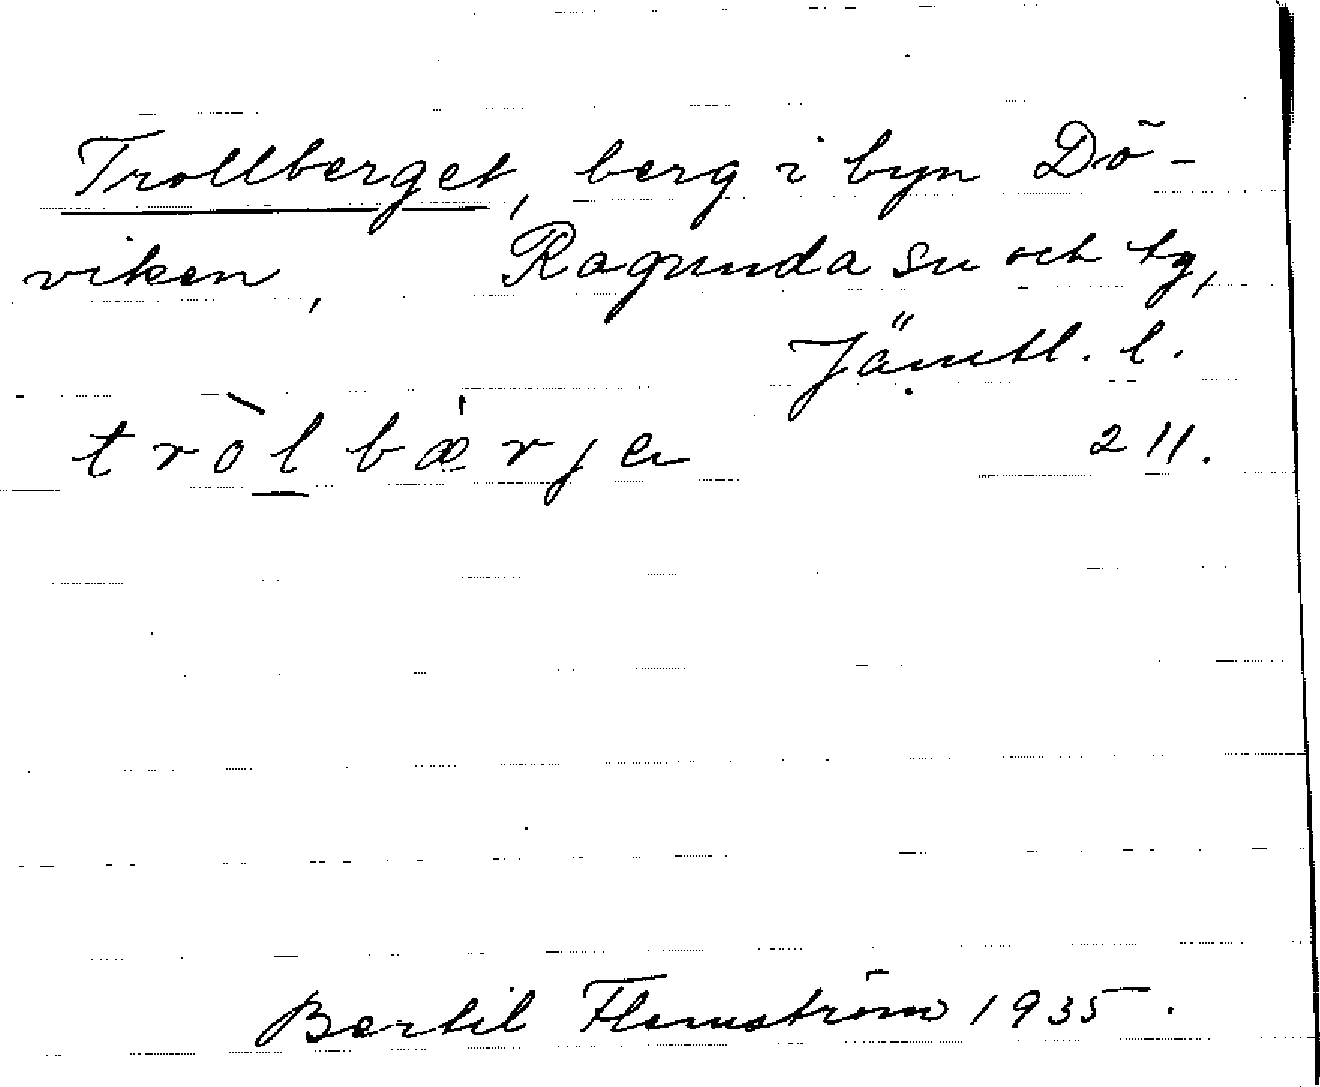 Trollberget, berg i byn Dö-
viken, Ragunda sn och tg,
Jämtl. l.
tròlbærjɐ 211.
Bertil Flemström 1935.